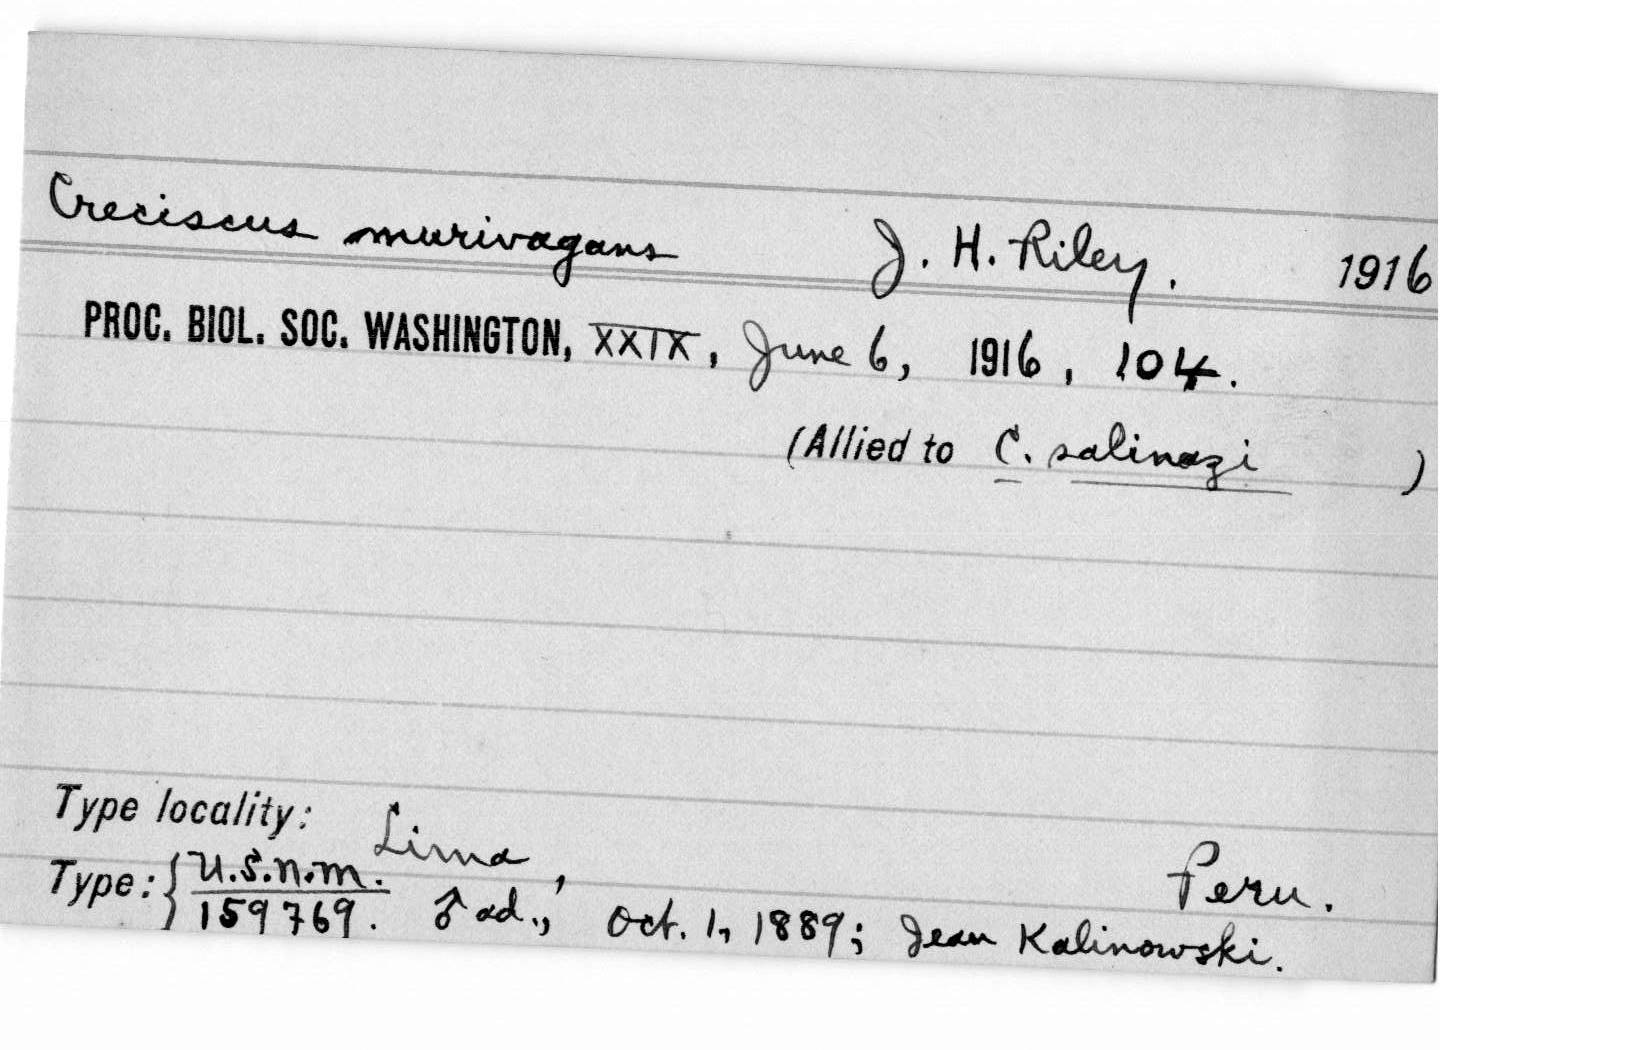 Creciscus murivagans J. H. Riley. 1916
PROC. BIOL. SOC. WASHINGTON, XXIX, June 6, 1916, 104.
(Allied to C. salinazi )
Type locality: Lima, Peru.
Type: { U.S.N.M. 159769. ♂ ad., Oct. 1, 1889; Jean Kalinowski.